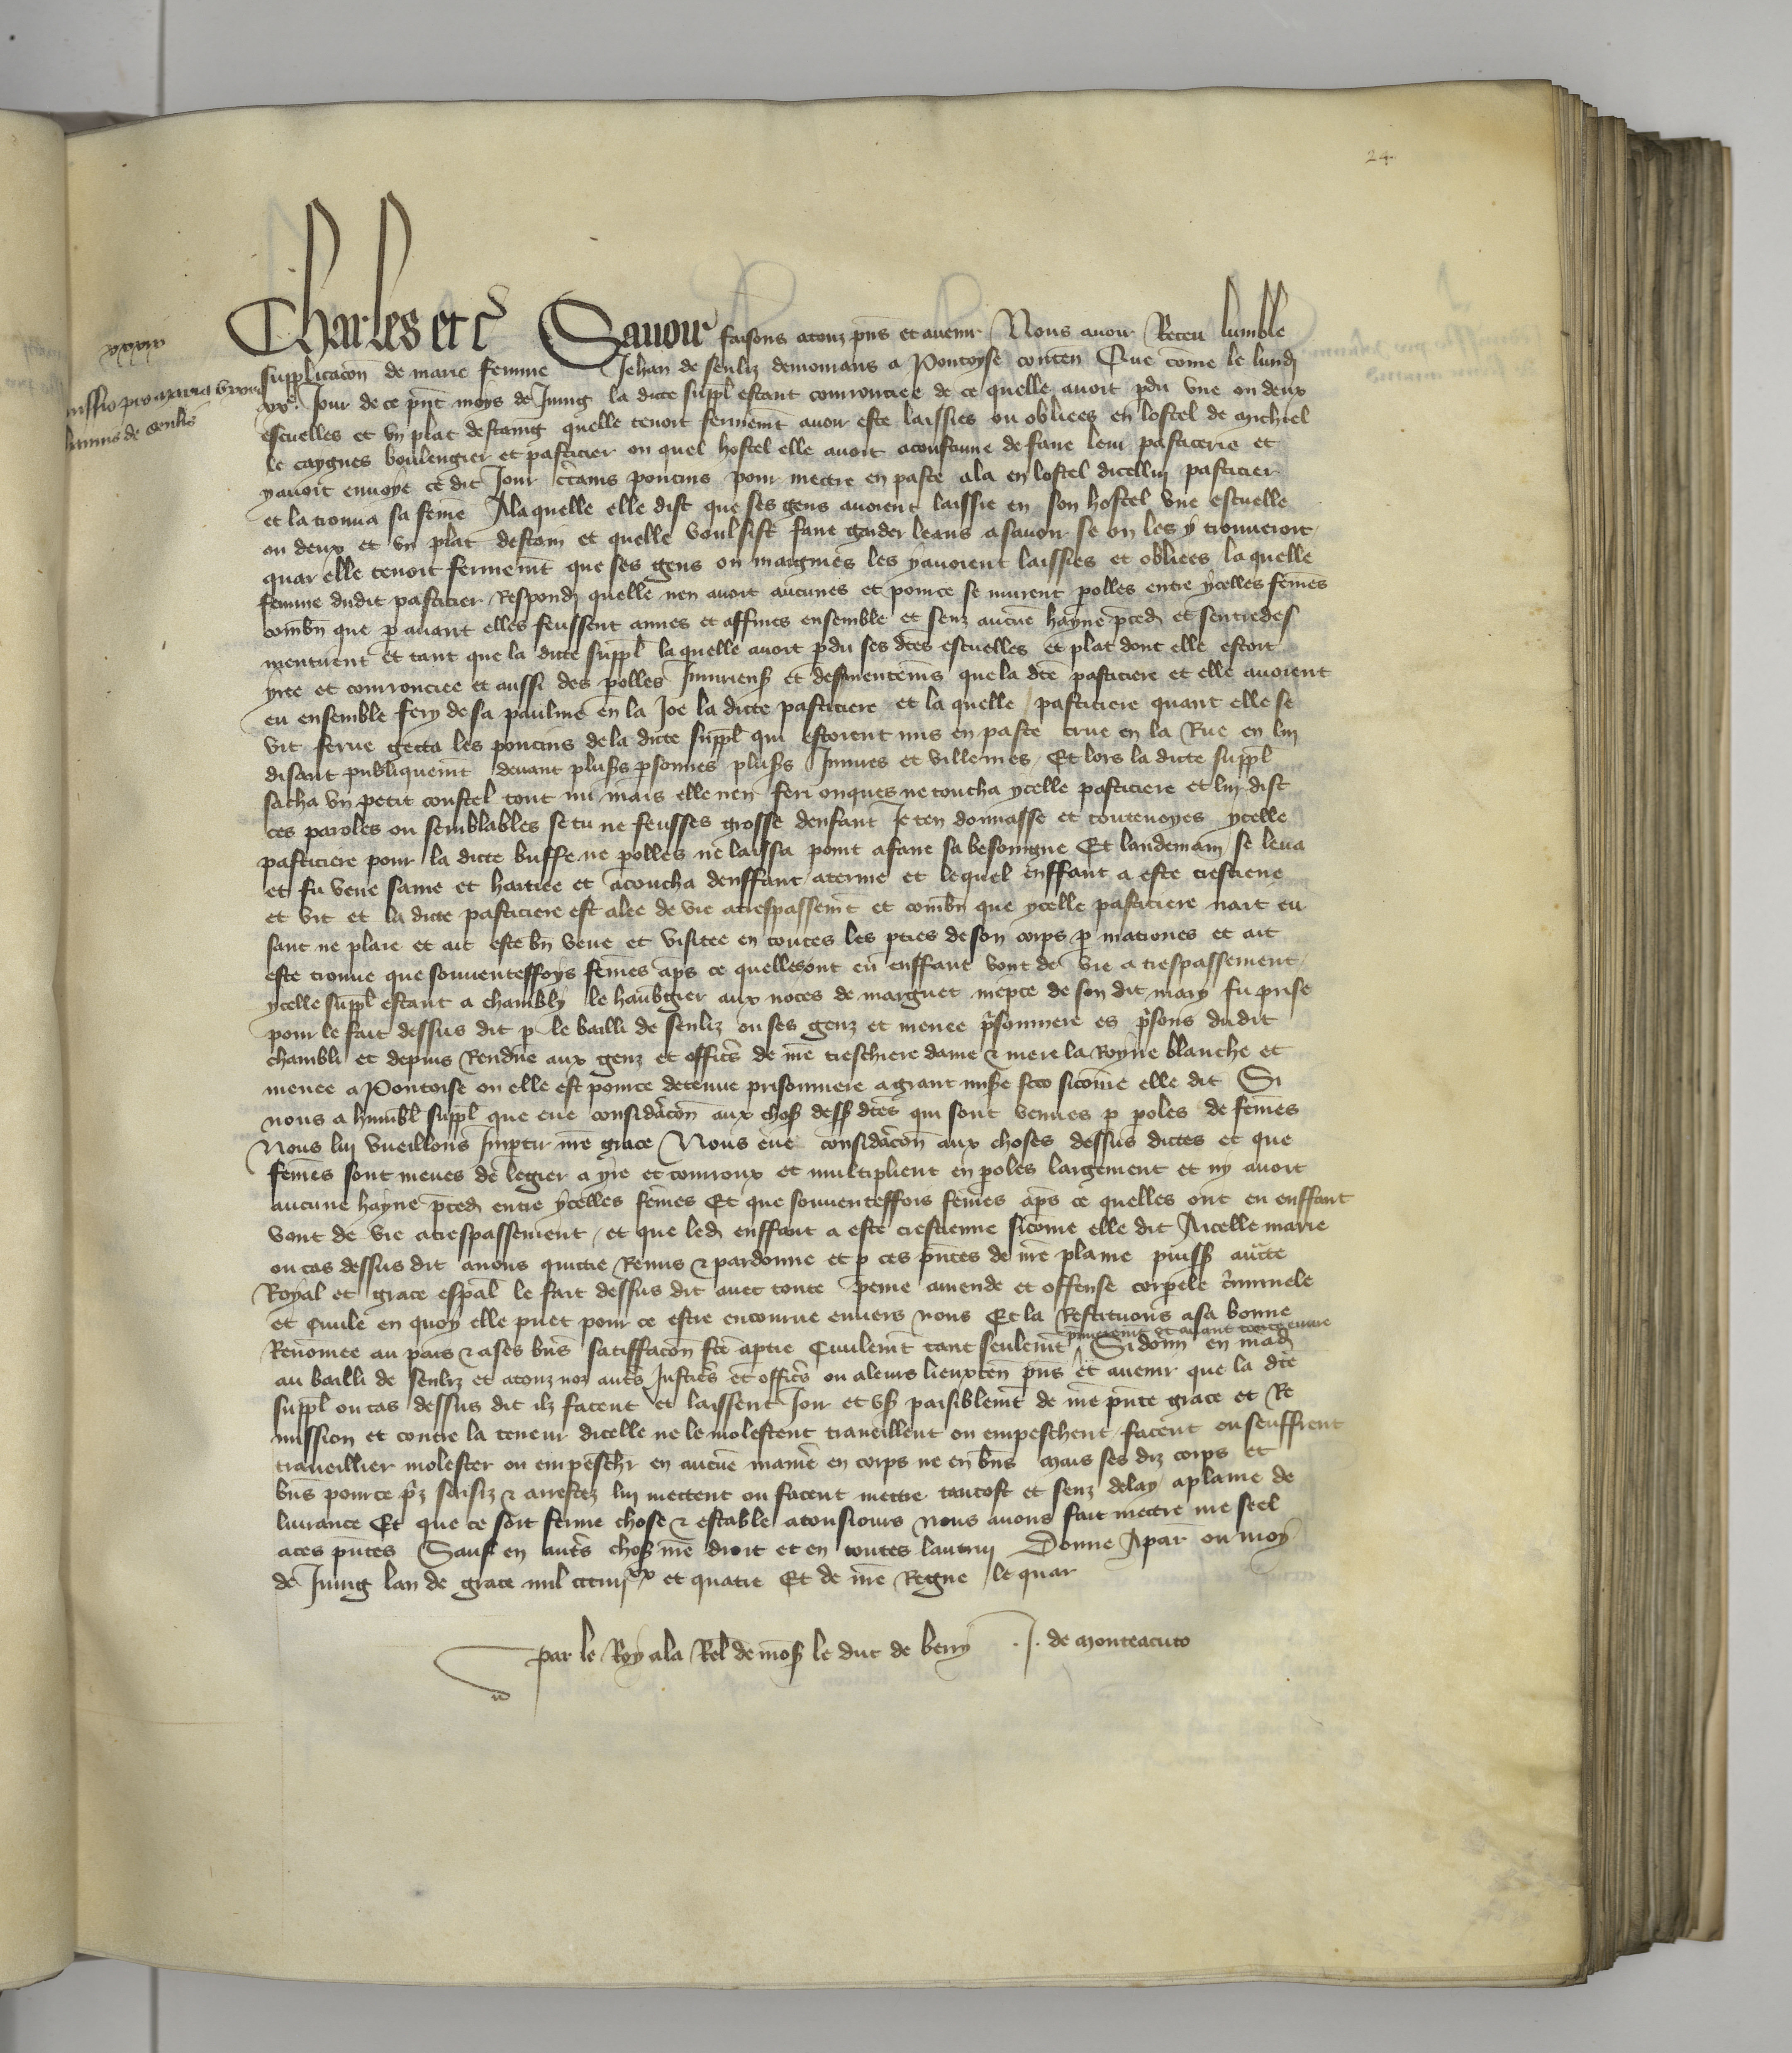 24
Charles etc Savoir faisons a touz pns et avenir Nous avoir Receu lumble
xxxvi
supplicacon de marie femme Jehan de senliz demourans a Pontoyse conten Que come le lundi
missio pro maria uxore
xxe Jour de ce pnt moys de Juing la dicte suppl estant courrouciee de ce quelle avoit pdu une ou deux
Johannis de Senlis
escuelles et un plat destaing quelle tenoit fermemt avoir este laissies ou obliees en lostel de Michiel
le caygnes boulengier et pasticier ou quel hostel elle avoit acoustume de faire leur pasticerie et
y avoit envoye ce dit Jour ctains poucins pour mettre en paste ala en lostel dicellui pasticier
et la trouva sa feme A la quelle elle dist que ses gens avoient laissie en son hostel une escuelle
ou deux et un plat destain et quelle voulsist faire garder leans a savoir se on les y trouveroit
quar elle tenoit fermemt que ses gens ou maignies les y avoient laissies et obliees la quelle
femme dudit pasticier Respondi quelle nen avoit aucunes et pource se murent polles entre ycelles femes
combn que p avant elles feussent amies et affines ensemble et senz aucue hayne pced et sentredes
mentirent et tant que la dicte suppl la quelle avoit pdu ses dtes escuelles et plat dont elle estoit
yree et courrouciee et aussi des polles Injuriens et desmentems que la dte pasticiere et elle avoient
eu ensemble fery de sa paulme en la Joe la dicte pasticiere et la quelle pasticiere quant elle se
vit ferue getta les poucins de la dicte suppl qui estoient mis en paste crue en la Rue en lui
disant publiquemt devant plus psonnes plus Injures et villenies Et lors la dicte suppl
sacha un petit coustel tout nu mais elle nen feri onques ne toucha ycelle pasticiere et lui dist
ces paroles ou semblables se tu ne feusses grosse denfant Je ten donnasse et toutevoyes ycelle
pasticiere pour la dicte buffe ne polles ne laissa point a faire sa besoingne Et landemain se leva
et fu veue saine et haitiee et acoucha denffant a terme et lequel enffant a este crestiene
et vit et la dicte pasticiere est alee de vie a trespassemt et combn que ycelle pasticiere nait eu
sanc ne plaie et ait este bn veue et visitee en toutes les pties de son corps p matrones et ait
este trouve que souventeffoys femes aps ce quelles ont eu enffant vont de vie a trespassement
ycelle suppl estant a chambly le haubgier aux noces de marguet niepce de son dit mary fu prise
pour le fait dessus dit p le bailli de senliz ou ses genz et menee psonniere es psons dudit
chambli et depuis Rendue aux genz et offics de nre treschiere dame & mere la Royne blanche et
menee a Pontoise ou elle est pource detenue prisonniere a grant mise sicome elle dit Si
nous a humbl suppl que eue consideracon aux chos dess dtes qui sont venues p poles de femes
Nous lui vueillons Imptir nre grace Nous eue consideracon aux choses dessus dictes et que
femes sont meues de legier a yre et courroux et multiplient en poles largement et ny avoit
aucune hayne pced entre ycelles femes Et que souventeffois femes aps ce quelles ont eu enffant
vont de vie a trespassement et que led enffant a este crestienne sicome elle dit A icelle marie
ou cas dessus dit avons quictie Remis & pardonne et p ces pntes de nre plaine puiss aucte
Royal et grace espal le fait dessus dit avec toute peine amende et offense corpele criminele
et Civile en quoy elle puet pour ce estre encourue envers nous Et la Restituons a sa bonne
Renomee au pais & a ses bns satiffacon fte a ptie Civilemt tant seulemt Si donn en mad
au bailli de senliz et a touz noz auts Justics et offics ou a leurs lieuxten pns et avenir que la dte
suppl ou cas dessus dit ilz facent et laissent Joir et us paisiblemt de nre pnte grace et Re
mission et contre la teneur dicelle ne le molestent traveillent ou empeschent facent ou seuffrent
traveillier molester ou empeschr en aucue maniere en corps ne en bns Mais ses diz corps et
bns pource priz saisiz & arrestez lui mettent ou facent mettre tantost et senz delay a plaine de
livrance Et que ce soit ferme chose & estable a tousiours nous avons fait mettre nre seel
a ces pntes Sauf en auts chos nre droit et en toutes lautrui Donne A par ou moys
de Juing lan de grace mil ccc iiijxx et quatre Et de nre Regne le quar
par le Roy a la Rel de mons le duc de berry J. de Monteacuto